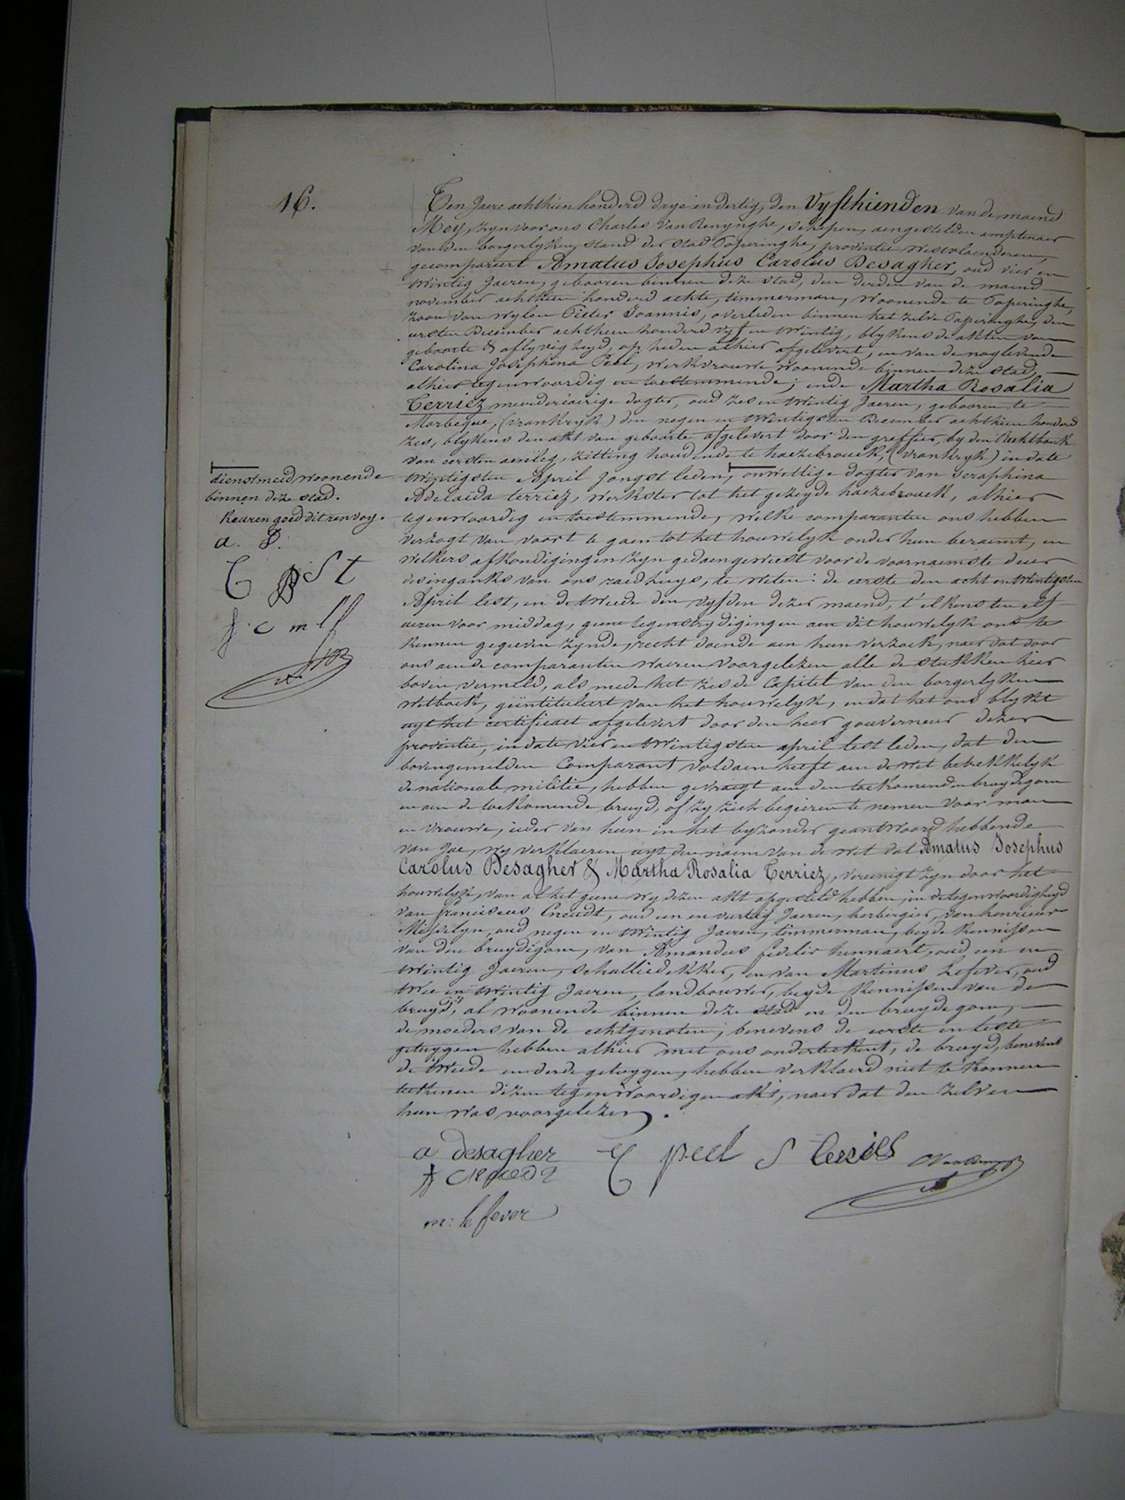 16.
Ten Jare achthien honderd drye en dertig, den Vyfthienden van de maend
Mey, zyn voor ons Charles Van Renynghe, schepen, aengestelden amptenaer
van den borgerlyken stand der stad Poperinghe, provintie Westvlaenderen,
gecompareert Amatus Josephus Carolus Desagher, oud vier en
twintig Jaeren, gebooren binnen deze stad, den derden van de maend
november achthien honderd achte, timmerman, woonende te Poperinghe,
zoon van wylen Pieter Joannis, overleden binnen het zelve Poperinghe, den
eersten December achthien honderd vyf en twintig, blykens de akten van
geboorte & aflyvigheyd, op heden alhier afgelevert, en van de naglevende
Carolina Josephina Peel, werkvrouwe woonende binnen deze stad,
alhier tegenwoordig en toestemmende; ende Martha Rosalia
Terriez meerderjairige dogter, oud zes en twintig Jaeren, gebooren te
Morbeque, (vrankryk) den negen en twintigsten December achthien honderd
zes, blykens den akt van geboorte afgelevert door den greffier, by den Rechtbank
van eersten aenleg, zitting houdende te haezebrouck, (vrankryk) in date
twintigsten April Jongst leden, onwettige dogter van Seraphina
Adelaida terriez, werkster tot het gezeyde haezebrouck, alhier
tegenwoordig en toestemmende, welke comparanten ons hebben
verzogt van voort te gaen tot het houwelyk onder hun beraemt, en
welkers afkondigingen zyn gedaen geweest voor de voornaemste deur
des inganks van ons raedhuys, te weten: de eerste den acht en twintigsten
April lest, en de tweede den vyfden dezer maend, t'elkens ten elf
ueren voor middag, geene tegenstrydigingen aen dit houwelyk ons te
kennen gegeven zynde, recht doende aen hun verzoek, naer dat door
ons aen de comparanten waeren voorgelezen alle de stukken hier
boven vermeld, als mede het zesde Capitel van den borgerlyken
wetboek, geïntituleert van het houwelyk, en dat het ons blykt
uyt het certificaet afgelevert door den heer gouverneur dezer
provintie, in date vier en twintigsten april lest leden, dat den
bovengemelden Comparant voldaen heeft aen de wet betrekkelyk
de nationale militie, hebben gevraegt aen den toekomenden bruydigom
en aen de toekomende bruyd, of zy zich begeeren te nemen voor man
en vrouwe, ieder van hun in het byzonder geantwoord hebbende
van Jae, wy verklaeren uyt den naem van de wet dat Amatus Josephus
Carolus Desagher & Martha Rosalia Terriez, vereenigt zyn door het
houwelyk, van al het geene wy dezen akt opgesteld hebben, in de tegenwoordigheyd
van franciscus, oud een en veertig Jaeren, herbergier, van
oud negen en twintig Jaeren, timmerman, beyde kennissen
van den bruydigom, van Amandus fidelis hennaert, oud een en
twintig Jaeren, schalliedekker, en van Martinus Lefever, oud
twee en twintig Jaeren, landbouwer, beyde kennissen van de
bruyd, al woonende binnen deze stad en den bruydegom,
de moeders van de echtgenoten, benevens de eerste en leste
getuygen hebben alhier met ons onderteekent, de bruyd, benevens
de tweede en derde getuygen, hebben verklaerd niet te konnen
teekenen dezen tegenwoordigen akt, naer dat den zelven
hun was voorgelezen.
dienstmeid woonende
binnen deze stad.
keuren goed dit renvoy.
a. D.
C P S t
f. c m lf
a desagher C peel S teries
m: le fever